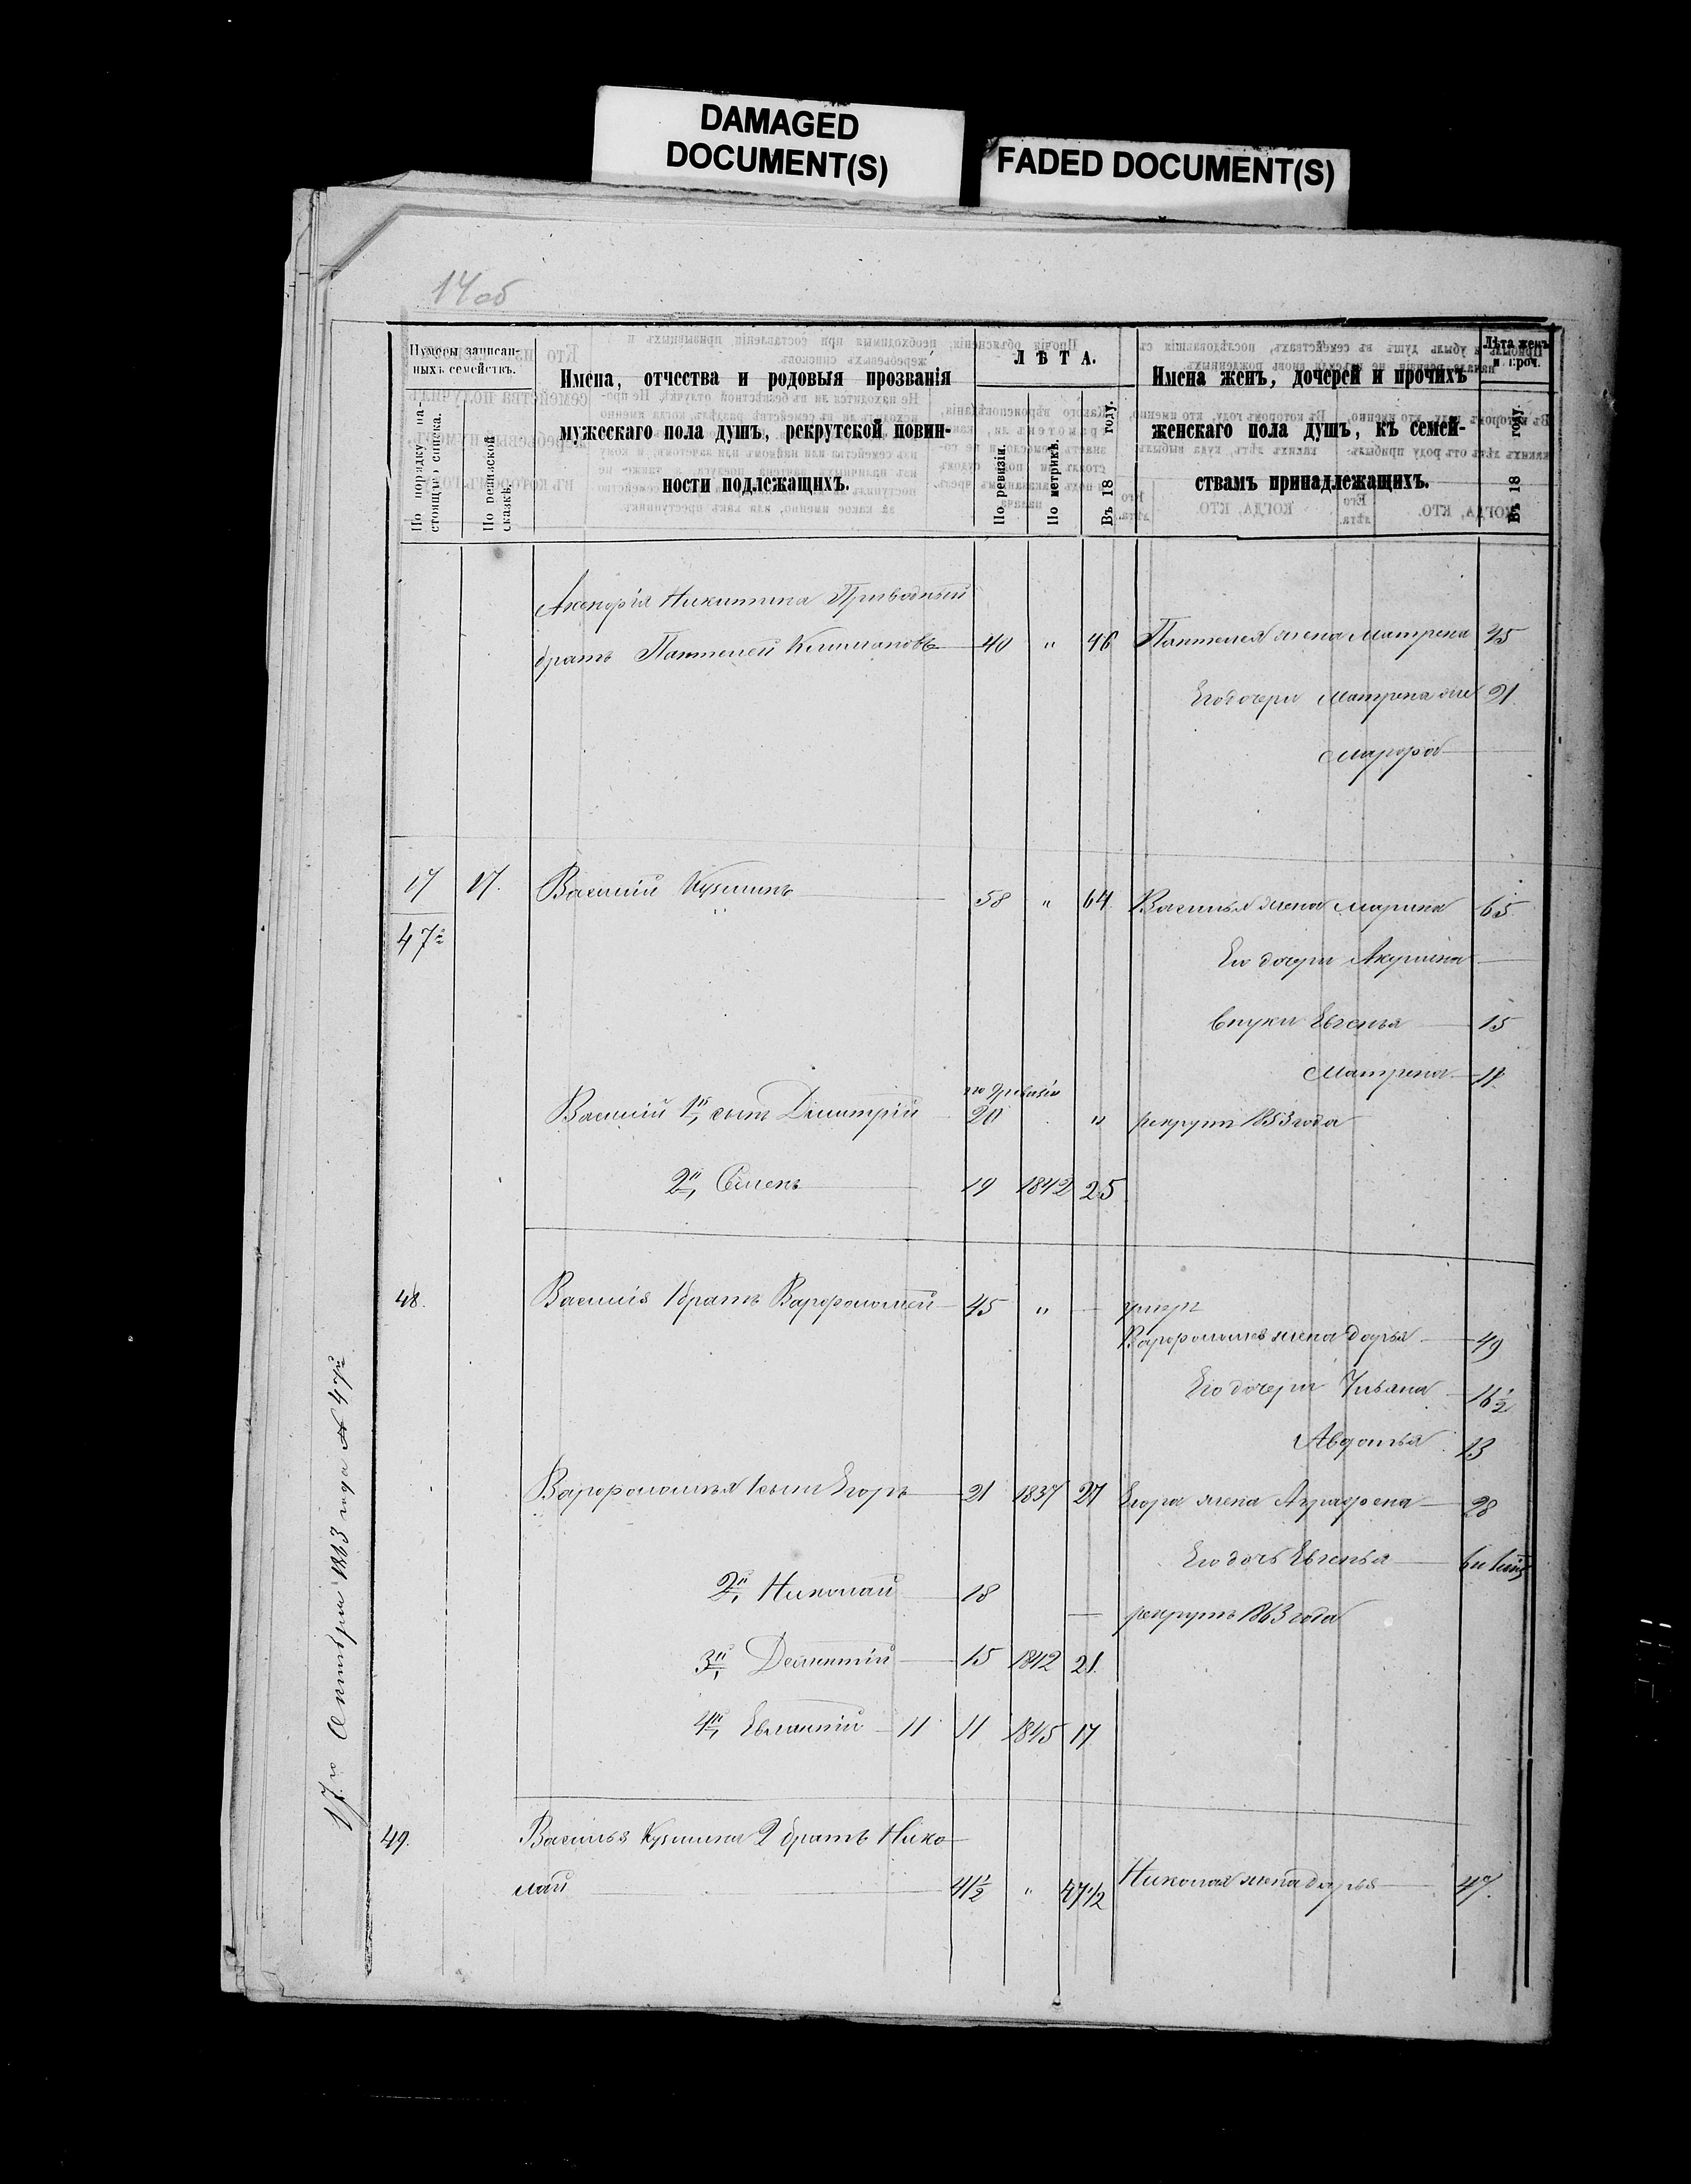 DAMAGED
DOCUMENT(S)
FADED DOCUMENT(S)
14 об
Нумеры записан-
ныхъ семействъ.
По порядку на-
стоящаго списка.
По ревизской
сказкѣ.
Имена, отчества и родовыя прозванія
мужескаго пола душъ, рекрутской повин-
ности подлежащихъ.
ЛѢТА.
По ревизіи.
По метрикѣ.
Въ 18 году.
Имена женъ, дочерей и прочихъ
женскаго пола душъ, къ семей-
ствамъ принадлежащихъ.
Лѣта женъ
и проч.
Въ 18 году.
Никитина
братъ Пантелей 40 " 46 Пантелея жена Матрена 45
Его дочери Матрена 21
17 17. Василій Кузминъ 58 " 64 Василья жена Марина 65
47
Его дочери Акулина
внуки Евгенья 15
Матрена 11
по ревизіи
Василій 1й сынъ Димитрій 20 " рекрутъ 1853 года
2й Семенъ 19 1842 25
48. Василія 1 братъ Варфоломей 45 " умеръ
Варфоломея жена Дарья 49
Его дочери Ульяна 16½
Авдотья 13
Варфоломея 1 сынъ Егоръ 21 1837 27 Егора жена Аграфена 28
Его дочь Евгенья
2й Николай 18 рекрутъ 1863 года
3й 15 1842 21.
4й 11 11 1845 17
49. Василья Кузмина 2 братъ Нико
лай 41½ " 47 1/2 Николая жена Дарья 47.
17го Октября 1863 года №